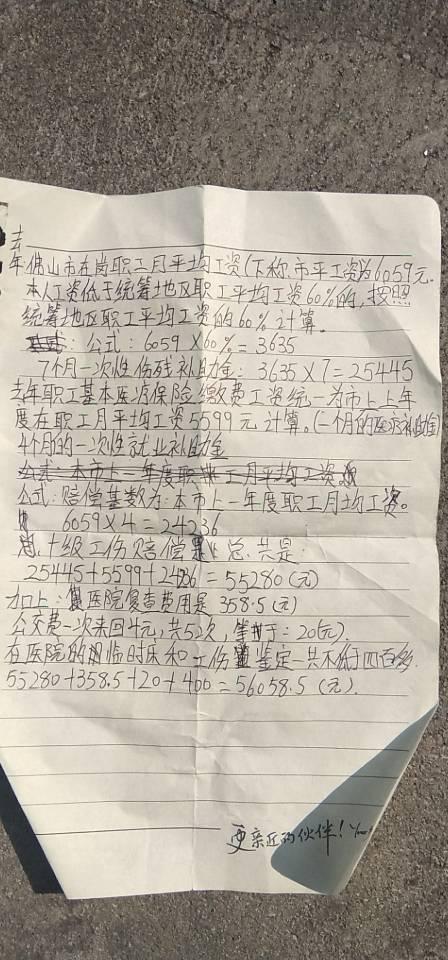 去
年佛山市在岗职工月平均工资(下称.市平工资)为6059元.
本人工资低于统筹地区职工平均工资60%的,按照
统筹地区职工平均工资的60%计算。
公式:6059×60%=3635
7个月一次性伤残补助金:3635×7=25445
去年职工基本医疗保险缴费工资统一为市上上年
度在职工月平均工资5599元计算。(一个月的医疗补助金)
4个月的一次性就业补助金
公式:本市上一年度职工月平均工资
公式:赔偿基数为:本市上一年度职工月均工资。
6059×4=24236
总十级工伤赔偿总共是:
25445+5599+24236=55280(元)
加上:医院复查费用是358.5(元)
公交费一次来回4元,共5次,等于=20(元).
在医院的临时床和工伤鉴定一共不低于四百多.
55280+358.5+20+400=56058.5(元).
更亲近的伙伴!